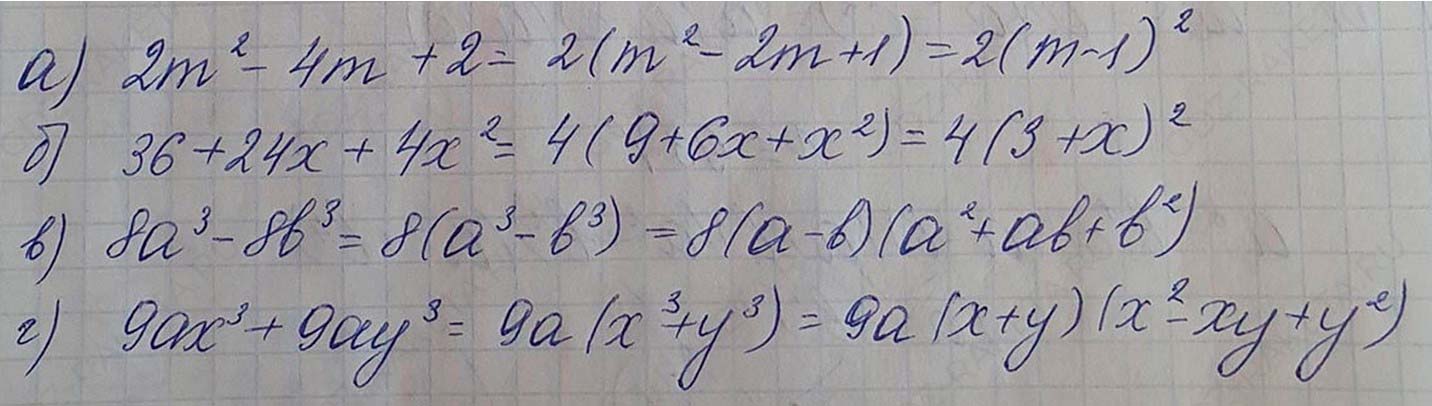 а) 2m² - 4m + 2 = 2(m² - 2m + 1) = 2(m - 1)²
б) 36 + 24x + 4x² = 4(9 + 6x + x²) = 4(3 + x)²
в) 8a³ - 8b³ = 8(a³ - b³) = 8(a - b)(a² + ab + b²)
г) 9ax³ + 9ay³ = 9a(x³ + y³) = 9a(x + y)(x² - xy + y²)